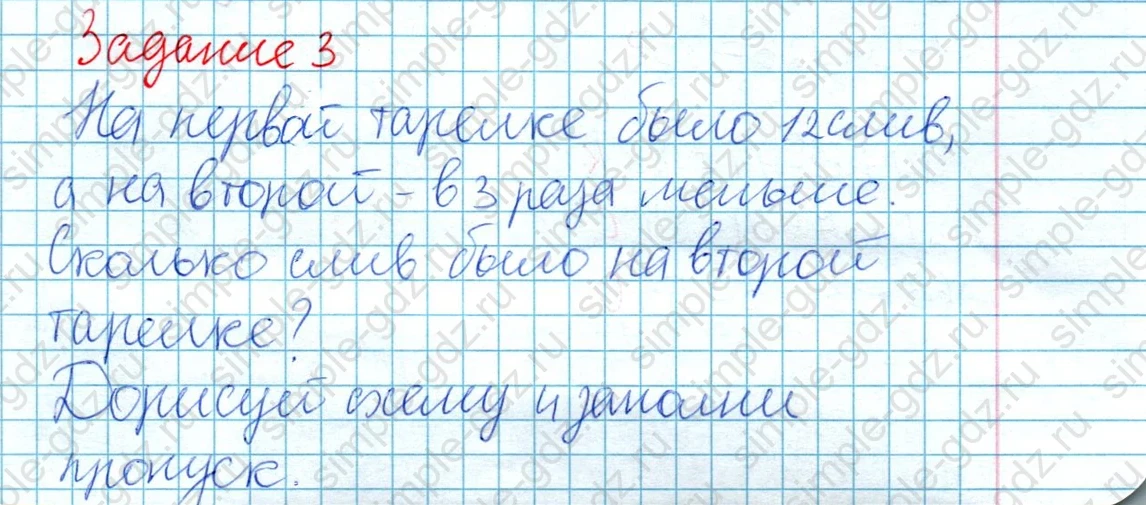 Задание 3
На первой тарелке было 12 слив,
а на второй - в 3 раза меньше.
Сколько слив было на второй
тарелке?
Дорисуй схему и заполни
пропуск.
simple-gdz.ru